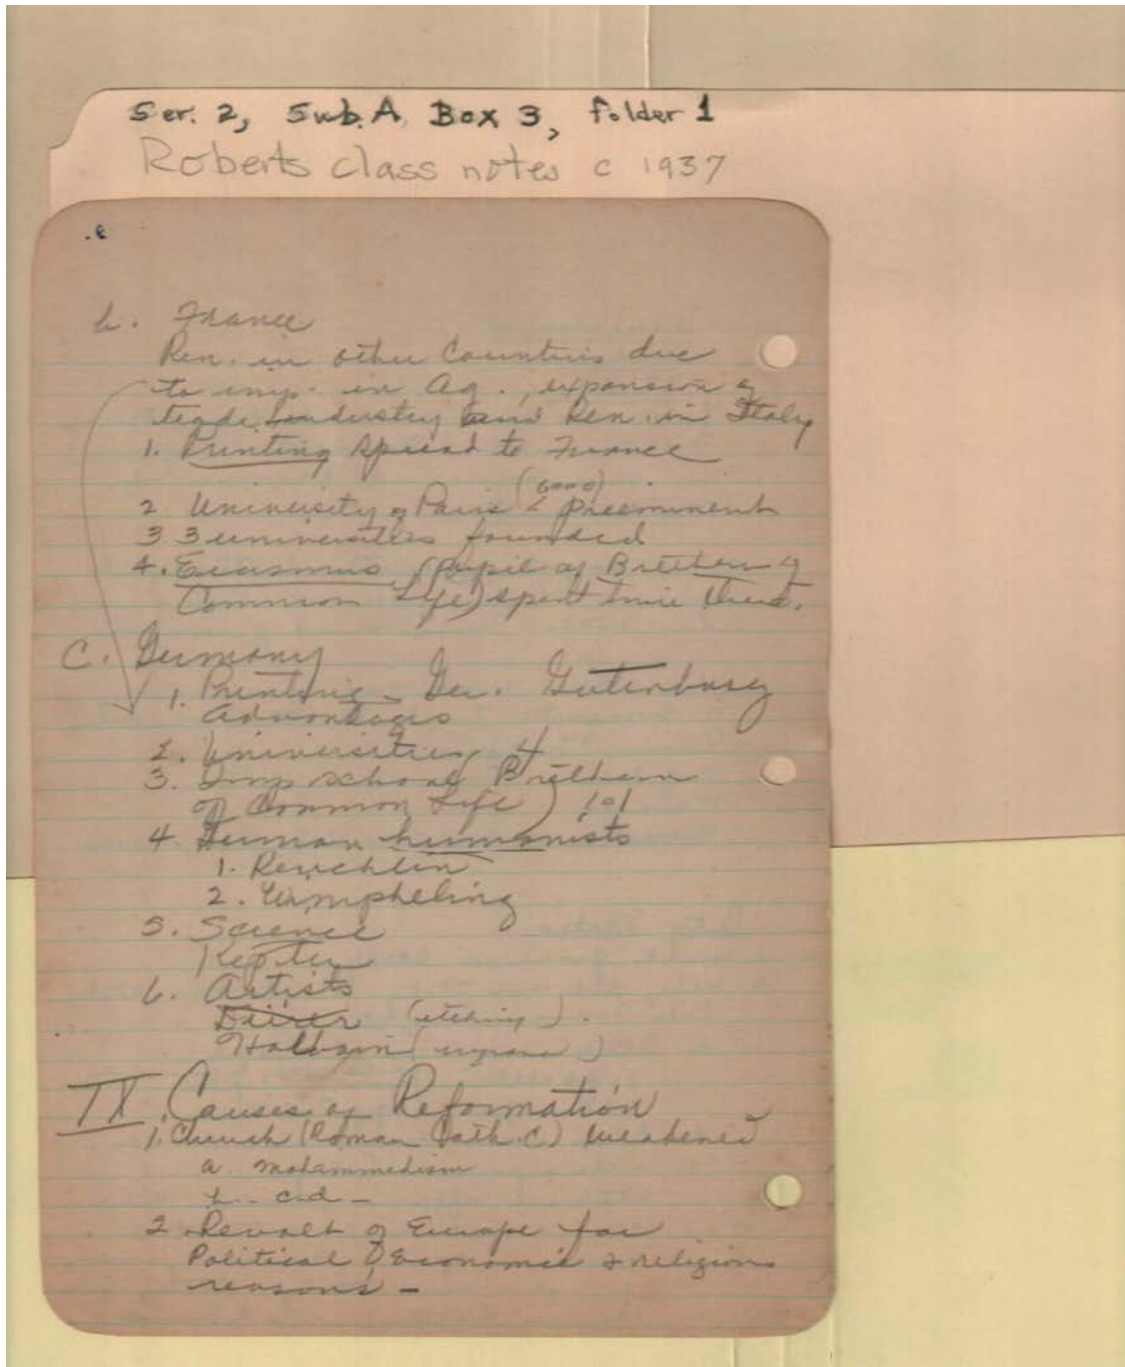 Ser. 2, Sub. A, Box 3, folder 1
Roberts class notes c 1937
b. France
Ren. in other Countries due
to imp. in Ag., expansion of
trade, industry and Ren. in Italy
1. Printing spread to France
(6000)
2. University of Paris preeminent
3 3 universities founded
4. Erasmus (Pupil of Brethern of
Common Life) spent time there.
C. Germany
1. Printing - Ger. Gutenburg
advantages
2. Universities, 4
3. Imp school, Brethern
of Common Life)
4. German humanists
1. Reuchlin
2. Wimpheling
5. Science
Kepler
6. Artists
Dürer (etching).
Holbein
IX. Causes of Reformation
1. Church (Roman Cath. C) weakened
a. Mohammedism
b. c.d -
2. Revolt of Europe for
Political, Economic & religious
reasons -